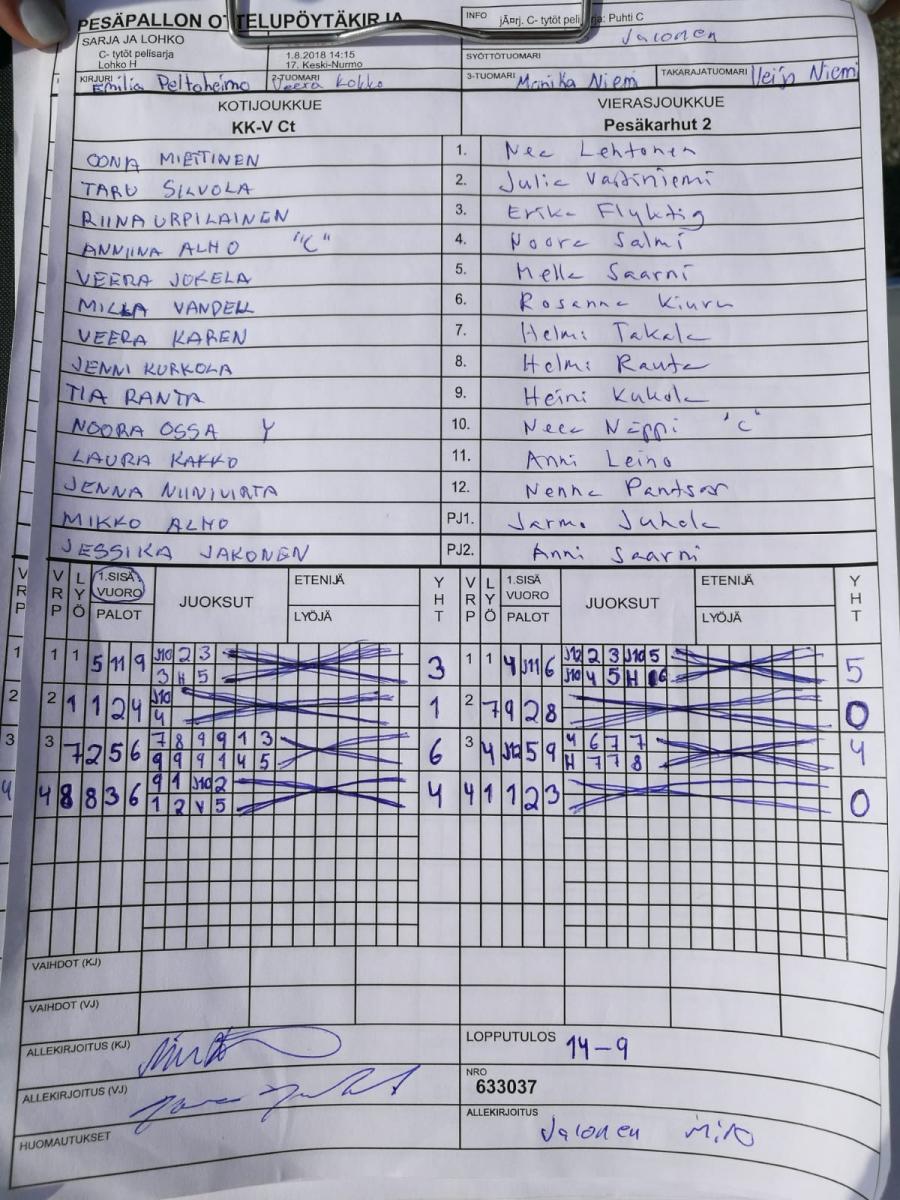 PESÄPALLON OTTELUPÖYTÄKIRJA
INFO jÃ¤rj. C- tytöt pelisarja: Puhti C
SARJA JA LOHKO
C- tytöt pelisarja
Lohko H
1.8.2018 14:15
17. Keski-Nurmo
Jalonen
SYÖTTÖTUOMARI
KIRJURI Emilia Peltoheimo
2-TUOMARI Veera Kokko
3-TUOMARI Monika Niemi
TAKARAJATUOMARI Veijo Niemi
KOTIJOUKKUE VIERASJOUKKUE
KK-V Ct Pesäkarhut 2
OONA MIETTINEN 1. Nea Lehtonen
TARU SILVOLA 2. Julia Vastiniemi
RIINA URPILAINEN 3. Erika Flyktig
ANNIINA ALHO "C" 4. Noora Salmi
VEERA JOKELA 5. Mella Saarni
MILLA VANDELL 6. Rosanna Kiuru
VEERA KAREN 7. Helmi Takala
JENNI KURKOLA 8. Helmi Rauta
TIA RANTA 9. Heini Kukola
NOORA OSSA Y 10. Neea Näppi "C"
LAURA KAKKO 11. Anni Leino
JENNA NIINIVIRTA 12. Nenna
MIKKO ALHO PJ1. Jarmo Juhola
JESSIKA JAKONEN PJ2. Anni Saarni
VRP LYÖ 1.SISÄ VUORO PALOT JUOKSUT ETENIJÄ LYÖJÄ YHT VRP LYÖ 1.SISÄ VUORO PALOT JUOKSUT ETENIJÄ LYÖJÄ YHT
1 1 5 11 9 J10 2 3 3 1 1 4 J11 6 J12 2 3 J10 5 5
3 H 5 J10 4 5 H 6
2 1 1 2 4 J10 1 2 7 9 2 8 0
4
3 7 2 5 6 7 8 9 9 1 3 6 3 4 J12 5 9 4 6 7 7 4
9 9 9 1 4 5 H 7 7 8
4 8 8 3 6 9 1 J10 2 4 4 1 1 2 3 0
1 2 4 5
VAIHDOT (KJ)
VAIHDOT (VJ)
ALLEKIRJOITUS (KJ)
LOPPUTULOS 14-9
ALLEKIRJOITUS (VJ)
NRO
633037
HUOMAUTUKSET
ALLEKIRJOITUS
Jalonen Milo